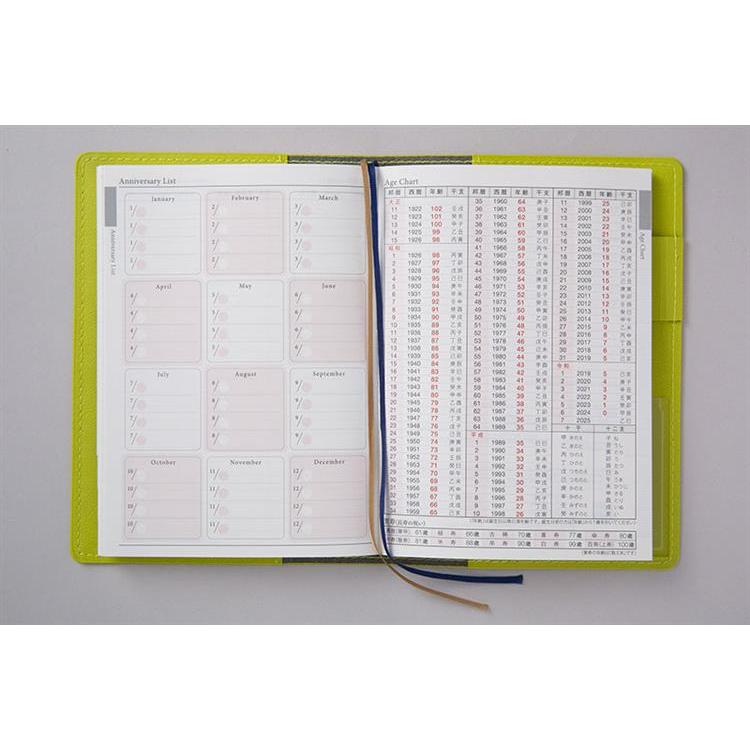 Anniversary List
January
1/
1/
1/
1/
February
2/
2/
2/
2/
March
3/
3/
3/
3/
April
4/
4/
4/
4/
May
5/
5/
5/
5/
June
6/
6/
6/
6/
July
7/
7/
7/
7/
August
8/
8/
8/
8/
September
9/
9/
9/
9/
October
10/
10/
10/
10/
November
11/
11/
11/
11/
December
12/
12/
12/
12/
Anniversary List
Age Chart
邦暦 西暦 年齢 干支
大正
11 1922 102 壬戌
12 1923 101 癸亥
13 1924 100 甲子
14 1925 99 乙丑
15 1926 98 丙寅
昭和
1 1926 98 丙寅
2 1927 97 丁卯
3 1928 96 戊辰
4 1929 95 己巳
5 1930 94 庚午
6 1931 93 辛未
7 1932 92 壬申
8 1933 91 癸酉
9 1934 90 甲戌
10 1935 89 乙亥
11 1936 88 丙子
12 1937 87 丁丑
13 1938 86 戊寅
14 1939 85 己卯
15 1940 84 庚辰
16 1941 83 辛巳
17 1942 82 壬午
18 1943 81 癸未
19 1944 80 甲申
20 1945 79 乙酉
21 1946 78 丙戌
22 1947 77 丁亥
23 1948 76 戊子
24 1949 75 己丑
25 1950 74 庚寅
26 1951 73 辛卯
27 1952 72 壬辰
28 1953 71 癸巳
29 1954 70 甲午
30 1955 69 乙未
31 1956 68 丙申
32 1957 67 丁酉
33 1958 66 戊戌
34 1959 65 己亥
邦暦 西暦 年齢 干支
35 1960 64 庚子
36 1961 63 辛丑
37 1962 62 壬寅
38 1963 61 癸卯
39 1964 60 甲辰
40 1965 59 乙巳
41 1966 58 丙午
42 1967 57 丁未
43 1968 56 戊申
44 1969 55 己酉
45 1970 54 庚戌
46 1971 53 辛亥
47 1972 52 壬子
48 1973 51 癸丑
49 1974 50 甲寅
50 1975 49 乙卯
51 1976 48 丙辰
52 1977 47 丁巳
53 1978 46 戊午
54 1979 45 己未
55 1980 44 庚申
56 1981 43 辛酉
57 1982 42 壬戌
58 1983 41 癸亥
59 1984 40 甲子
60 1985 39 乙丑
61 1986 38 丙寅
62 1987 37 丁卯
63 1988 36 戊辰
64 1989 35 己巳
平成
1 1989 35 己巳
2 1990 34 庚午
3 1991 33 辛未
4 1992 32 壬申
5 1993 31 癸酉
6 1994 30 甲戌
7 1995 29 乙亥
8 1996 28 丙子
9 1997 27 丁丑
10 1998 26 戊寅
邦暦 西暦 年齢 干支
11 1999 25 己卯
12 2000 24 庚辰
13 2001 23 辛巳
14 2002 22 壬午
15 2003 21 癸未
16 2004 20 甲申
17 2005 19 乙酉
18 2006 18 丙戌
19 2007 17 丁亥
20 2008 16 戊子
21 2009 15 己丑
22 2010 14 庚寅
23 2011 13 辛卯
24 2012 12 壬辰
25 2013 11 癸巳
26 2014 10 甲午
27 2015 9 乙未
28 2016 8 丙申
29 2017 7 丁酉
30 2018 6 戊戌
31 2019 5 己亥
令和
1 2019 5 己亥
2 2020 4 庚子
3 2021 3 辛丑
4 2022 2 壬寅
5 2023 1 癸卯
6 2024 0 甲辰
7 2025 乙巳
十干 十二支
甲 きのえ 子 ね
乙 きのと 丑 うし
丙 ひのえ 寅 とら
丁 ひのと 卯 う
戊 つちのえ 辰 たつ
己 つちのと 巳 み
庚 かのえ 午 うま
辛 かのと 未 ひつじ
壬 みずのえ 申 さる
癸 みずのと 酉 とり
戌 いぬ
亥 い
賀寿(長寿の祝い)
還暦(華甲) 61歳 緑寿 66歳 古稀 70歳 喜寿 77歳 傘寿 80歳
半寿(盤寿) 81歳 米寿 88歳 卒寿 90歳 白寿 99歳 百寿(上寿) 100歳
Age Chart